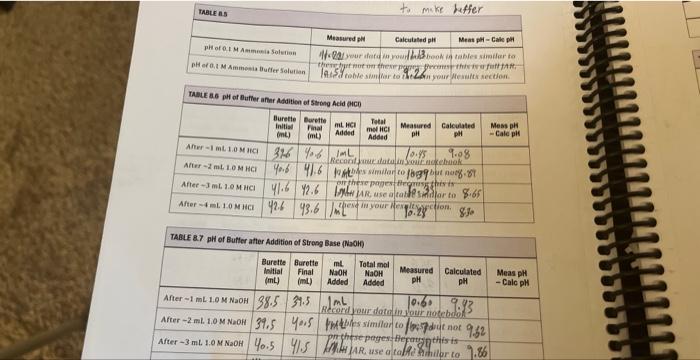 to make buffer
TABLE 8.5
Measured pH Calculated pH Meas pH – Calc pH
pH of 0.1 M Ammonia Solution 11.13 your data in your book in tables similar to
these but not on these pages. Because this is a full JAR,
pH of 0.1 M Ammonia Buffer Solution table similar to in your Results section.
TABLE 8.6 pH of Buffer after Addition of Strong Acid (HCl)
Burette Initial (mL) Burette Final (mL) mL HCl Added Total mol HCl Added Measured pH Calculated pH Meas pH – Calc pH
After ~1 mL 1.0 M HCl 39.6 40.6 1mL 10.45 9.08
Record your data in your notebook
After ~2 mL 1.0 M HCl 40.6 41.6 tables similar to 10.39 but not 8.87
on these pages. Because this is
After ~3 mL 1.0 M HCl 41.6 42.6 JAR, use a table similar to 8.65
these in your Results section.
After ~4 mL 1.0 M HCl 42.6 43.6 1mL 10.28 8.30
TABLE 8.7 pH of Buffer after Addition of Strong Base (NaOH)
Burette Initial (mL) Burette Final (mL) mL NaOH Added Total mol NaOH Added Measured pH Calculated pH Meas pH – Calc pH
After ~1 mL 1.0 M NaOH 38.5 39.5 1mL 10.60 9.43
Record your data in your notebook
After ~2 mL 1.0 M NaOH 39.5 40.5 tables similar to but not 9.62
on these pages. Because this is
After ~3 mL 1.0 M NaOH 40.5 41.5 JAR, use a table similar to 9.86